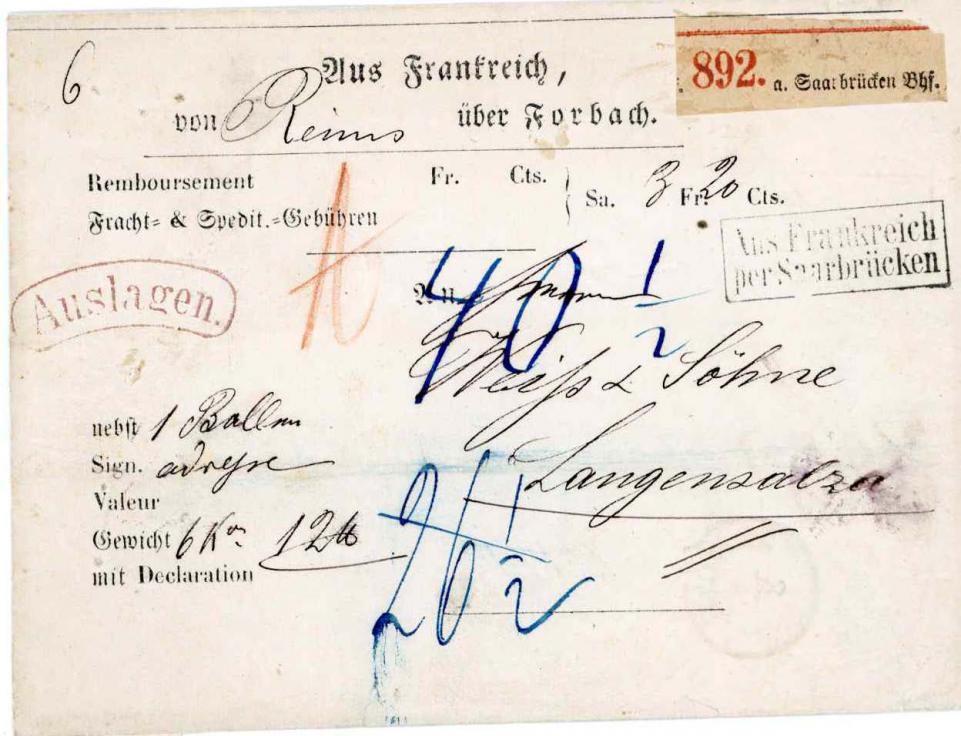 6
Aus Frankreich,
von Reims über Forbach.
892. a. Saarbrücken Bhf.
Remboursement Fr. Cts.
Fracht- & Spedit.-Gebühren
Sa. 3 Fr. 20 Cts.
Aus Frankreich
per Saarbrücken
Auslagen.
An
40 1/2
Weiss & Söhne
nebst 1 Ballen
Sign. adresse
Langensalza
Valeur
Gewicht 6 Ko. 12 ℔
mit Declaration
26 1/2